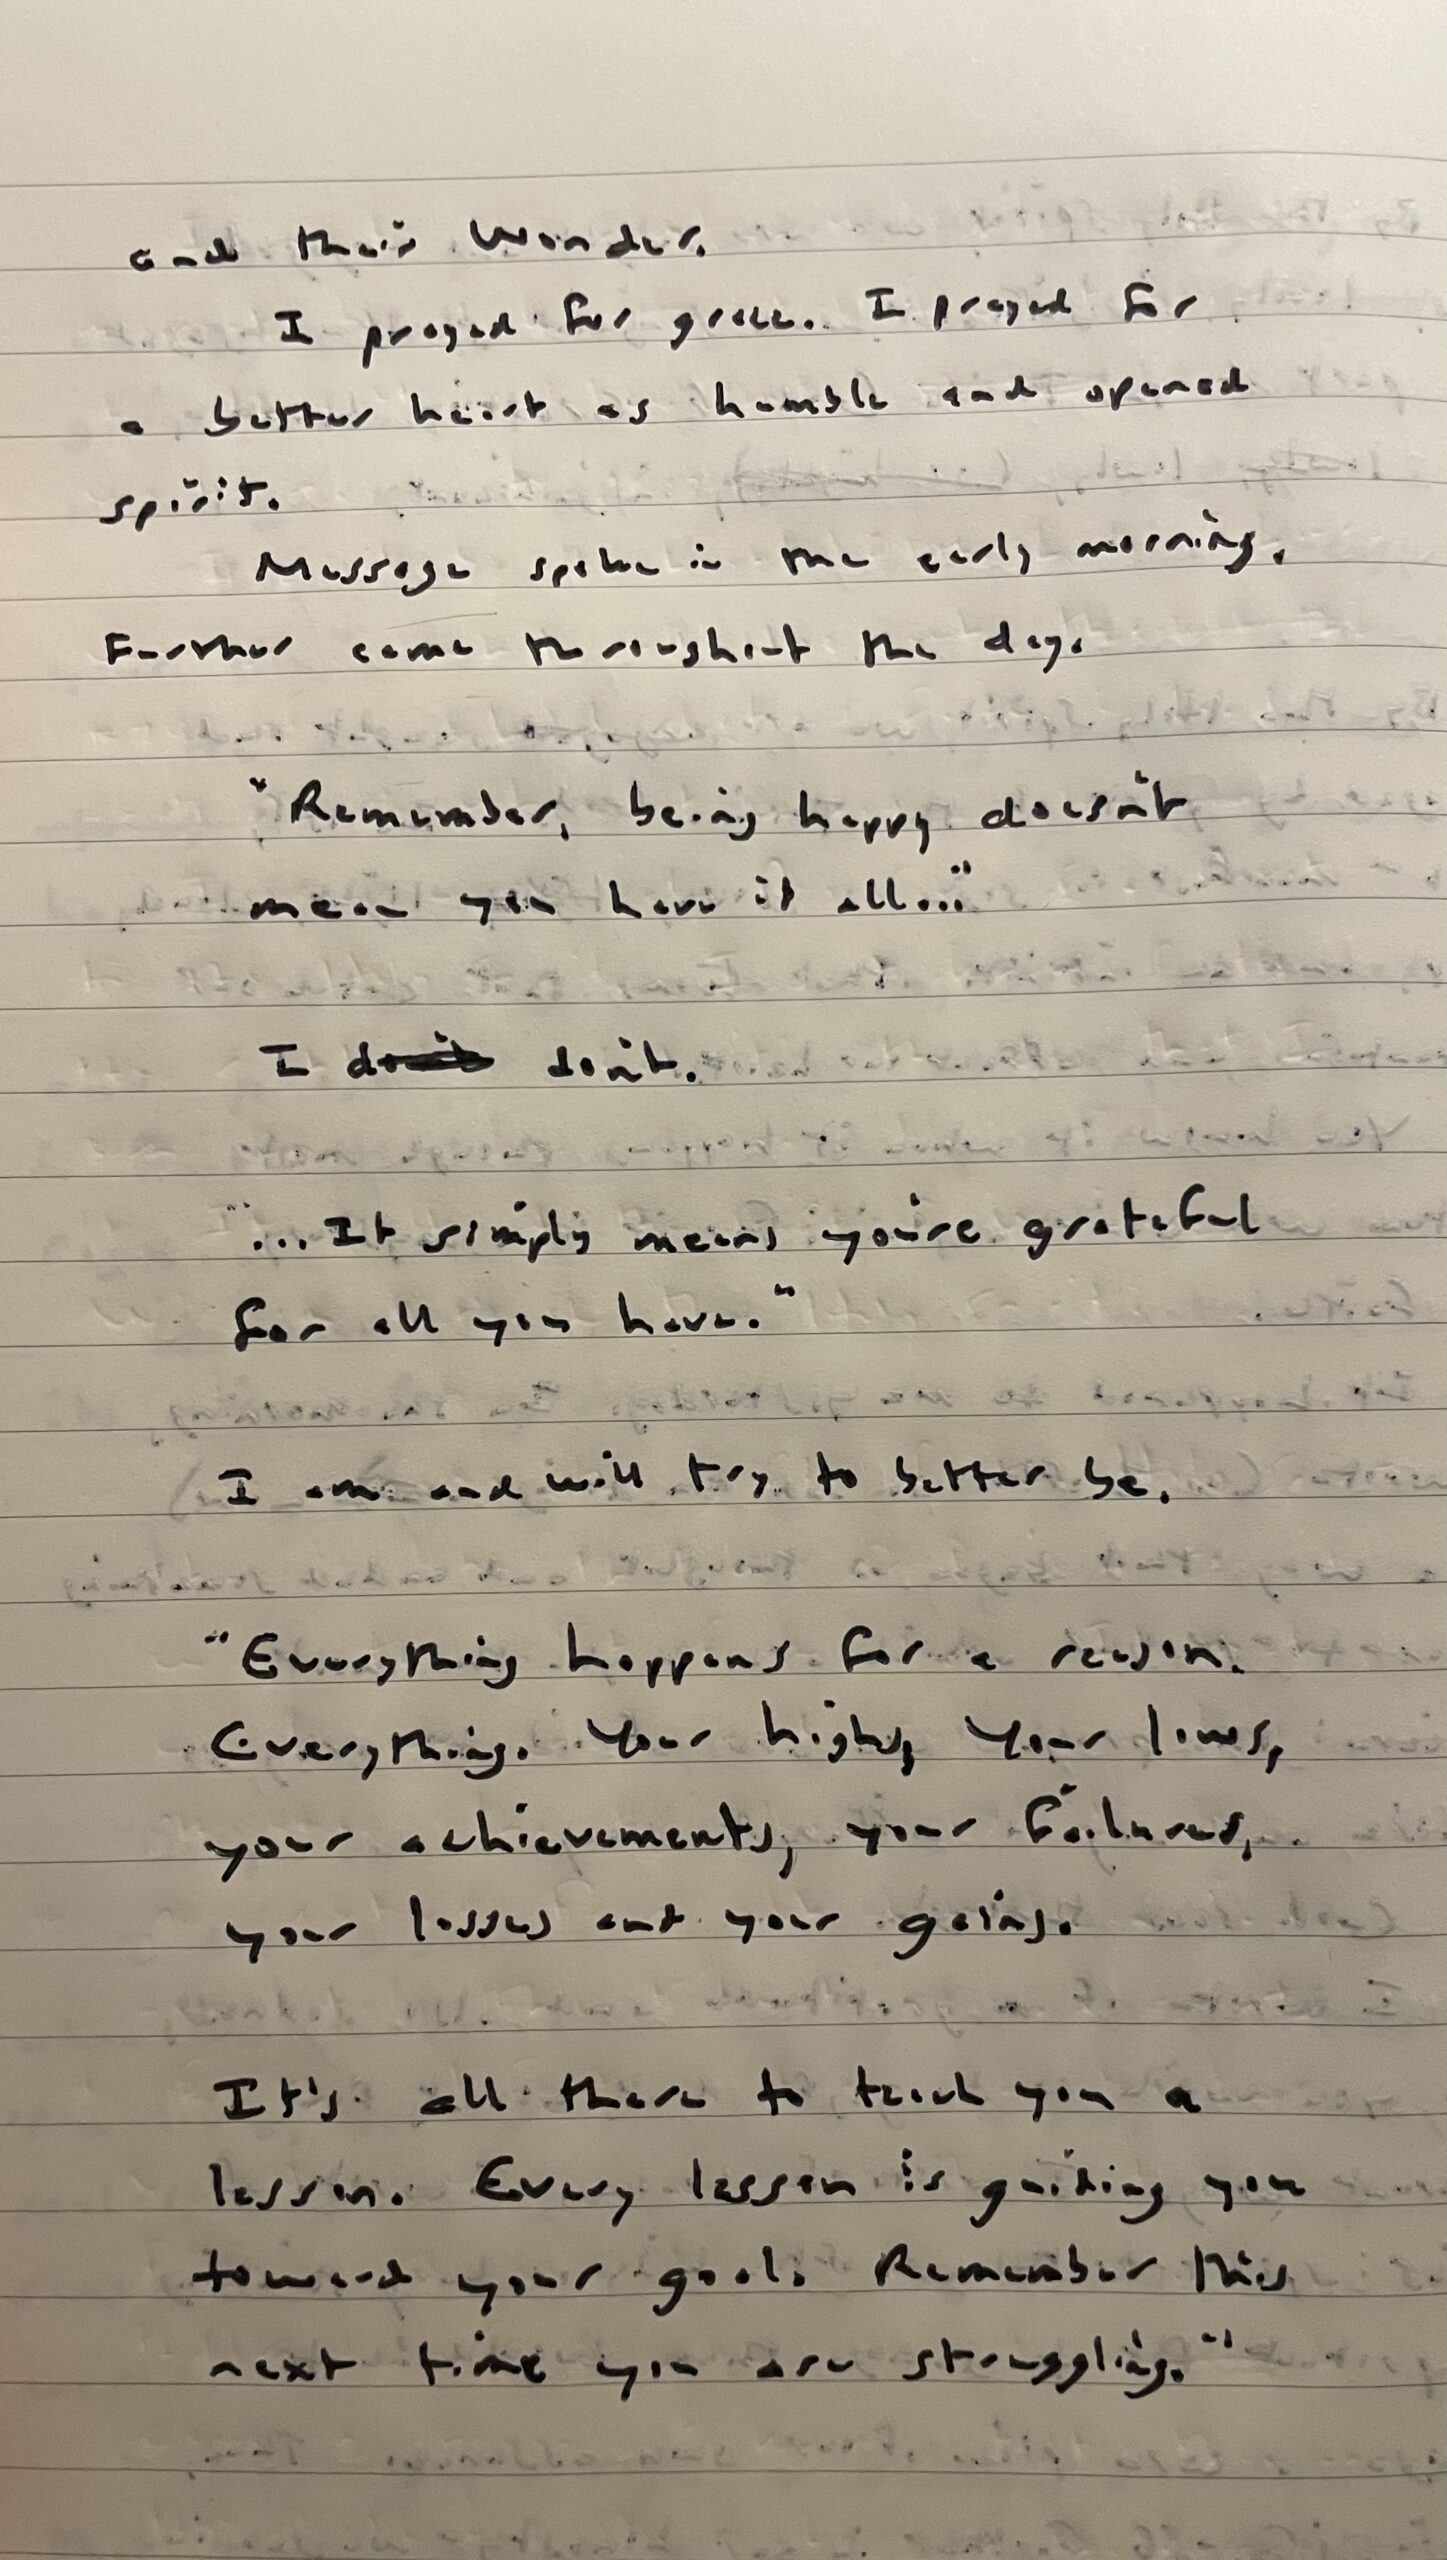 and their wonder.
I prayed for grace. I prayed for
a better heart as humble and opened
spirit.
Message spoke in the early morning.
Further came throughout the day.
"Remember, being happy doesn't
mean you have it all..."
I don't don't.
"...It simply means you're grateful
for all you have."
I am and will try to better be.
"Everything happens for a reason.
Everything. Your highs, your lows,
your achievements, your failures,
your losses and your gains.
It's all there to teach you a
lesson. Every lesson is guiding you
toward your goal. Remember this
next time you are struggling."